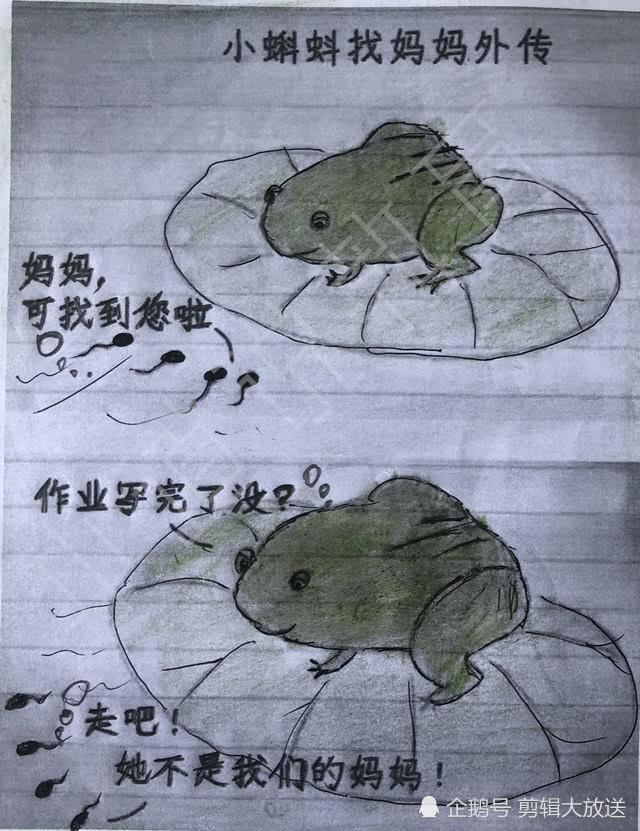 小蝌蚪找妈妈外传
妈妈,
可找到您啦
作业写完了没?
走吧!
她不是我们的妈妈!
企鹅号 剪辑大放送